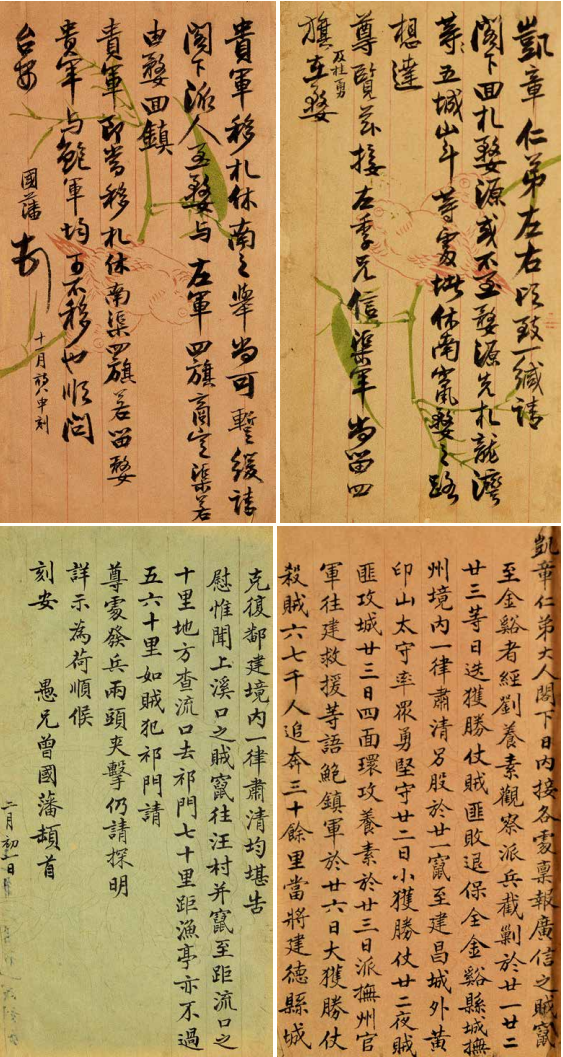 凱章仁弟左右頃致一緘請
閣下回札婺源或不至婺源先札龍灣
等五城山斗等處堵休南竄婺之路
想達
尊覽茲接左季兄信渠軍尚留四
旗及桂勇在婺
貴軍移札休南之舉尚可暫緩請
閣下派人至婺與左軍四旗商定渠若
由婺回鎮
貴軍即當移札休南渠四旗若留婺
貴軍與鮑軍均可不移也順問
台安 國藩 十月初八申刻
凱章仁弟大人閣下日內接各處稟報廣信之賊竄
至金谿者經劉養素觀察派兵截剿於廿一廿二
廿三等日迭獲勝仗賊匪敗退保全金谿縣城撫
州境內一律肅清另股於廿一竄至建昌城外黃
印山太守率眾勇堅守廿二日小獲勝仗廿二夜賊
匪攻城廿三日四面環攻養素於廿三日派撫州官
軍往建救援等語鮑鎮軍於廿六日大獲勝仗
殺賊六七千人追奔三十餘里當將建德縣城
克復鄱建境內一律肅清均堪告
慰惟聞上溪口之賊竄往汪村并竄至距流口之
十里地方查流口去祁門七十里距漁亭亦不過
五六十里如賊犯祁門請
尊處發兵兩頭夾擊仍請探明
詳示為荷順候
刻安 愚兄曾國藩頓首
二月初一日